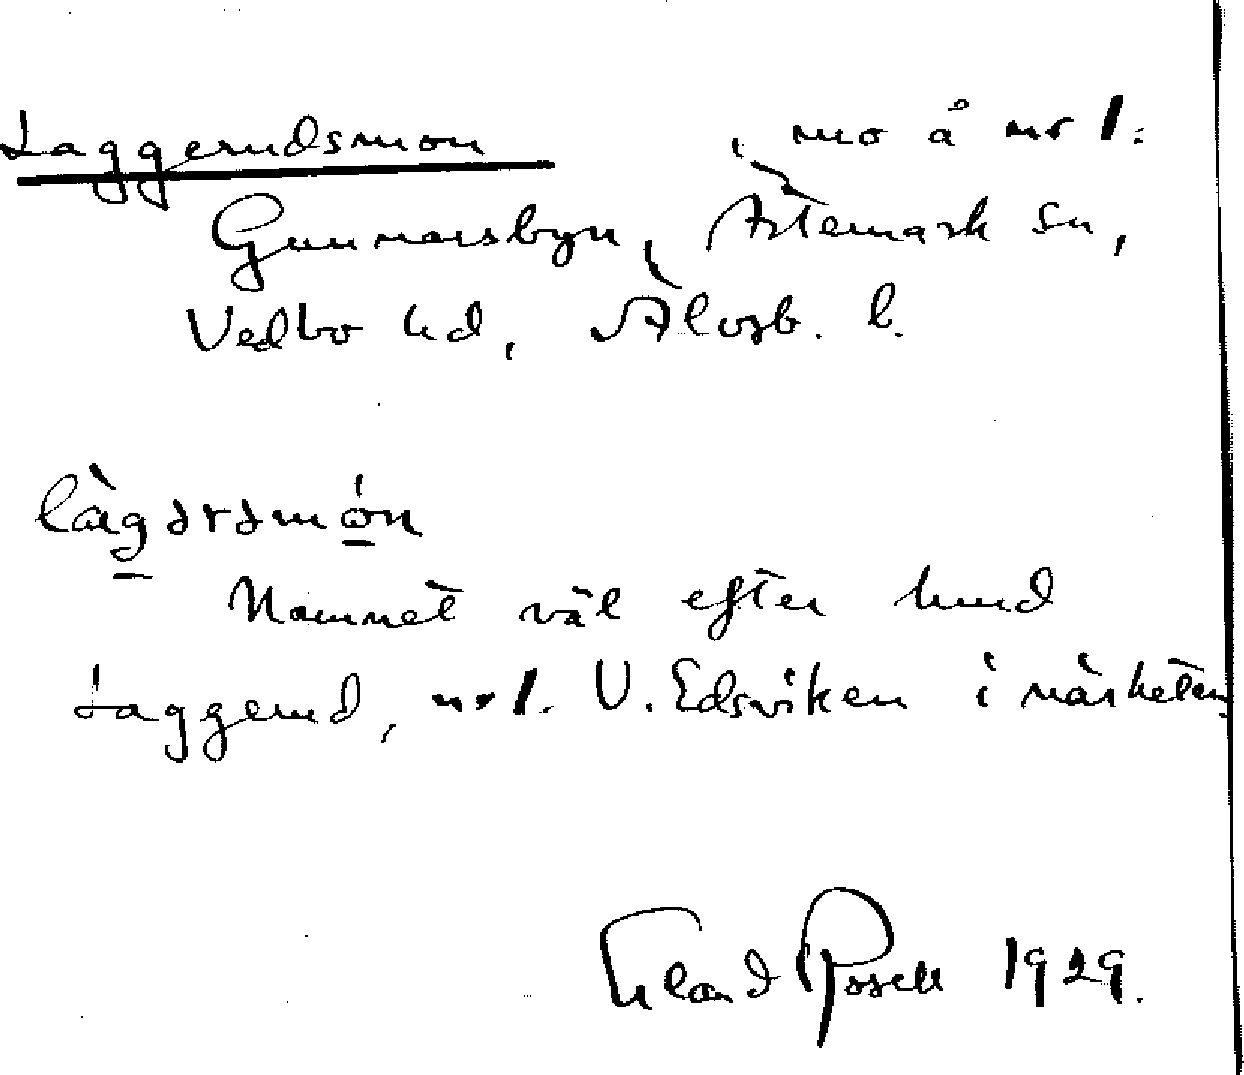 Laggerudsmon, mo å nr 1.
Gunnarsbyn, Ärtemark sn,
Vedbo hd, Älvsb. l.
Namnet väl efter hmd
Laggerud, nr 1. V. Edsviken i närheten.
Erland Rosell 1929.